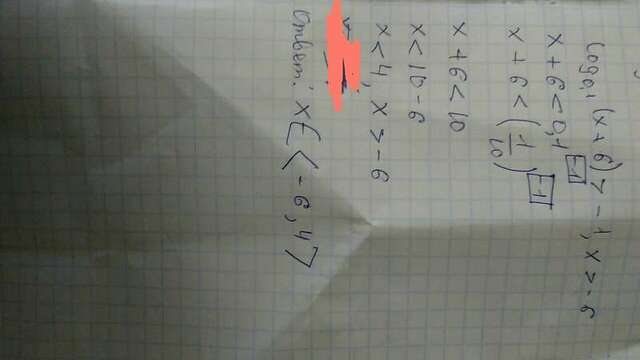 log₀,₁ (x + 6) > -1, x > -6
x + 6 < 0,1^-1
x + 6 < (1/10)^-1
x + 6 < 10
x < 10 - 6
x < 4, x > -6
Ответ: x ∈ < -6, 4 >